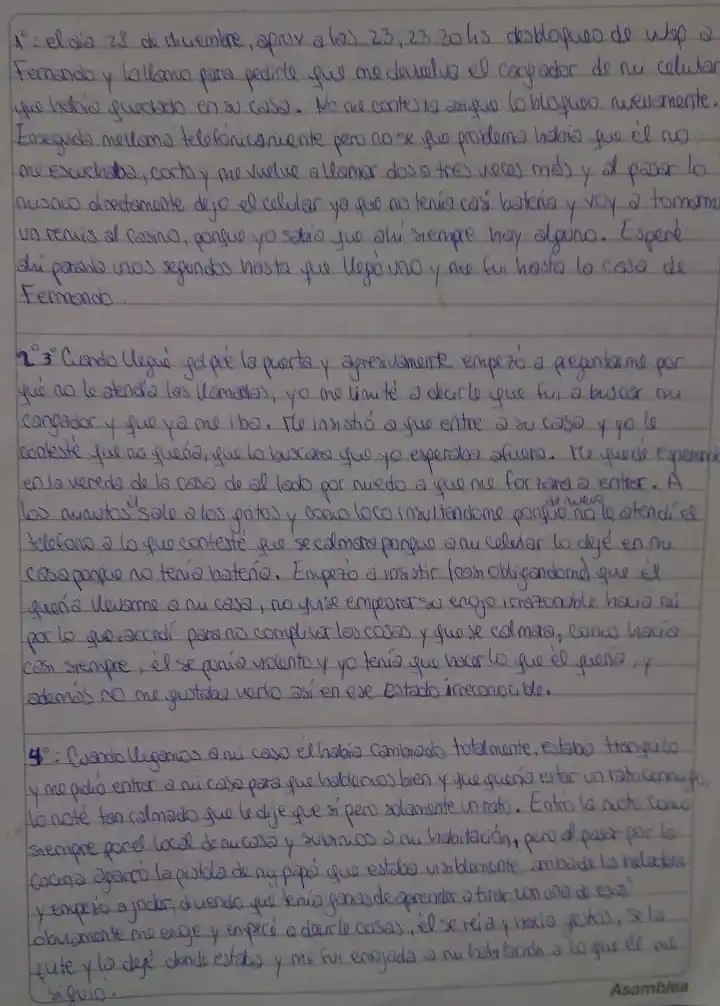 1°: el día 28 de diciembre, aprox a las 23, 23.30 hs desbloqueo de wsp a
Fernando y lo llamo para pedirle que me devuelva el cargador de mi celular
que había quedado en su casa. No me contesta aunque lo bloqueo nuevamente.
Enseguida me llama telefónicamente pero no se que problema había que él no
me escuchaba, corto y me vuelve a llamar dos o tres veces más y al pasar lo
mismo directamente dejo el celular ya que no tenía casi batería y voy a tomarme
un remis al casino, porque yo sabía que ahí siempre hay alguno. Esperé
ahí parada unos segundos hasta que llegó uno y me fui hasta la casa de
Fernando.
2° 3° Cuando llegué golpié la puerta y agresivamente empezó a preguntarme por
qué no le atendía las llamadas, yo me limité a decirle que fui a buscar mi
cargador y que ya me iba. Me insistió a que entre a su casa y yo le
contesté que no quería, que lo buscara que yo esperaba afuera. Me quedé esperando
en la vereda de la casa de al lado por miedo a que me forzara a entrar. A
los minutos él sale a los gritos y como loco insultandome porque no le atendí el
teléfono a lo que contesté que se calmara porque a mi celular lo dejé en mi
casa porque no tenía batería. Empezó a insistir (casi obligandome) que él
quería llevarme a mi casa, no quise empeorar su enojo irrazonable hacia mi
por lo que accedí para no complicar las cosas y que se calmara, como hacía
casi siempre, él se ponía violento y yo tenía que hacer lo que él quería, y
además no me gustaba verlo así en ese estado irreconocible.
4°: Cuando llegamos a mi casa él había cambiado totalmente, estaba tranquilo
y me pidió entrar a mi casa para que hablemos bien y que quería estar un rato conmigo,
lo noté tan calmado que le dije que si pero solamente un rato. Entró la moto como
siempre por el local de mi casa y subimos a mi habitación, pero al pasar por la
cocina agarró la pistola de mi papá que estaba visiblemente arriba de la heladera
y empezó a joder, diciendo que tenía ganas de aprender a tirar con una de esas
obviamente me enojé y empecé a decirle cosas, él se reía y hacía gestos, se la
quité y la dejé donde estaba y me fui enojada a mi habitación a lo que él me
siguió.
Asamblea